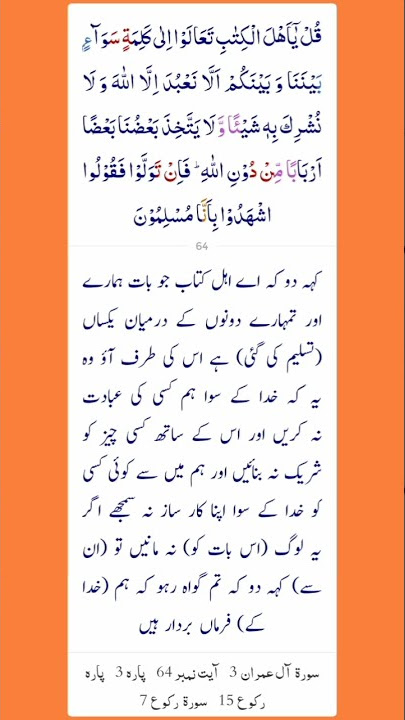 قُلْ يٰۤاَهْلَ الْكِتٰبِ تَعَالَوْا اِلٰى كَلِمَةٍ سَوَآءٍۭ
بَيْنَنَا وَ بَيْنَكُمْ اَلَّا نَعْبُدَ اِلَّا اللّٰهَ وَ لَا
نُشْرِكَ بِهٖ شَيْـًٔا وَّ لَا يَتَّخِذَ بَعْضُنَا بَعْضًا
اَرْبَابًا مِّنْ دُوْنِ اللّٰهِ ؕ فَاِنْ تَوَلَّوْا فَقُوْلُوا
اشْهَدُوْا بِاَنَّا مُسْلِمُوْنَ
64
کہہ دو کہ اے اہل کتاب جو بات ہمارے
اور تمہارے دونوں کے درمیان یکساں
(تسلیم کی گئی) ہے اس کی طرف آؤ وہ
یہ کہ خدا کے سوا ہم کسی کی عبادت
نہ کریں اور اس کے ساتھ کسی چیز کو
شریک نہ بنائیں اور ہم میں سے کوئی کسی
کو خدا کے سوا اپنا کار ساز نہ سمجھے اگر
یہ لوگ (اس بات کو) نہ مانیں تو (ان
سے) کہہ دو کہ تم گواہ رہو کہ ہم (خدا
کے) فرماں بردار ہیں
سورۃ آل عمران 3 آیت نمبر 64 پارہ 3 پارہ
رکوع 15 سورۃ رکوع 7